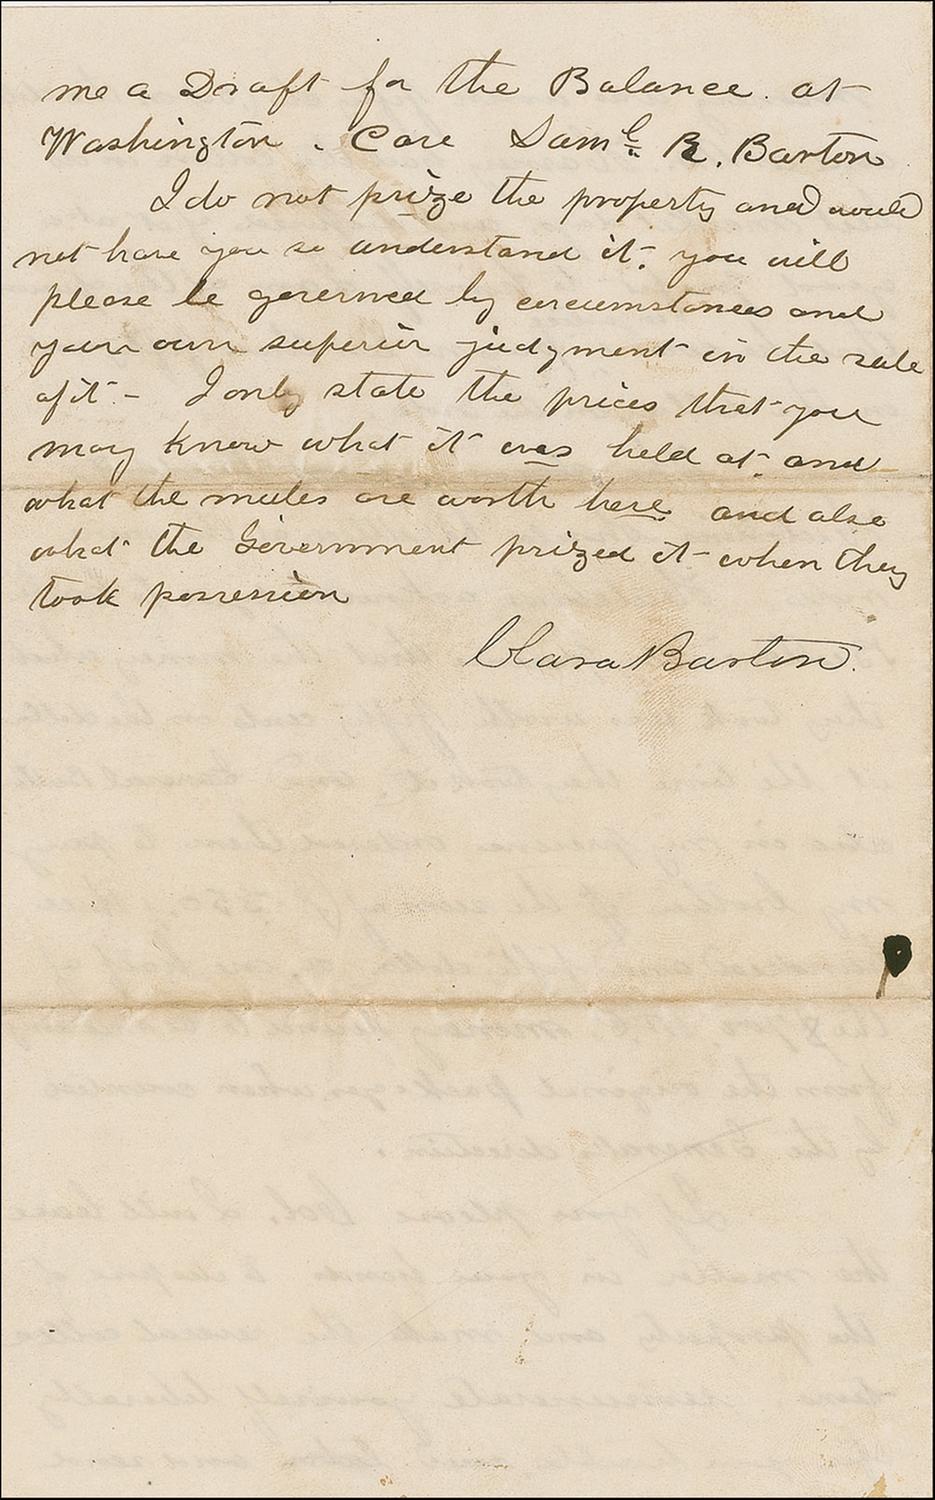 me a Draft for the Balance. at
Washington. Care Saml. R. Barton
I do not prize the property and would
not have you so understand it. you will
please be governed by circumstances and
your own superior judgment in the sale
of it - I only state the prices that you
may know what it was held at. and
what the mules are worth here and also
what the Government prized it when they
took possession
Clara Barton.